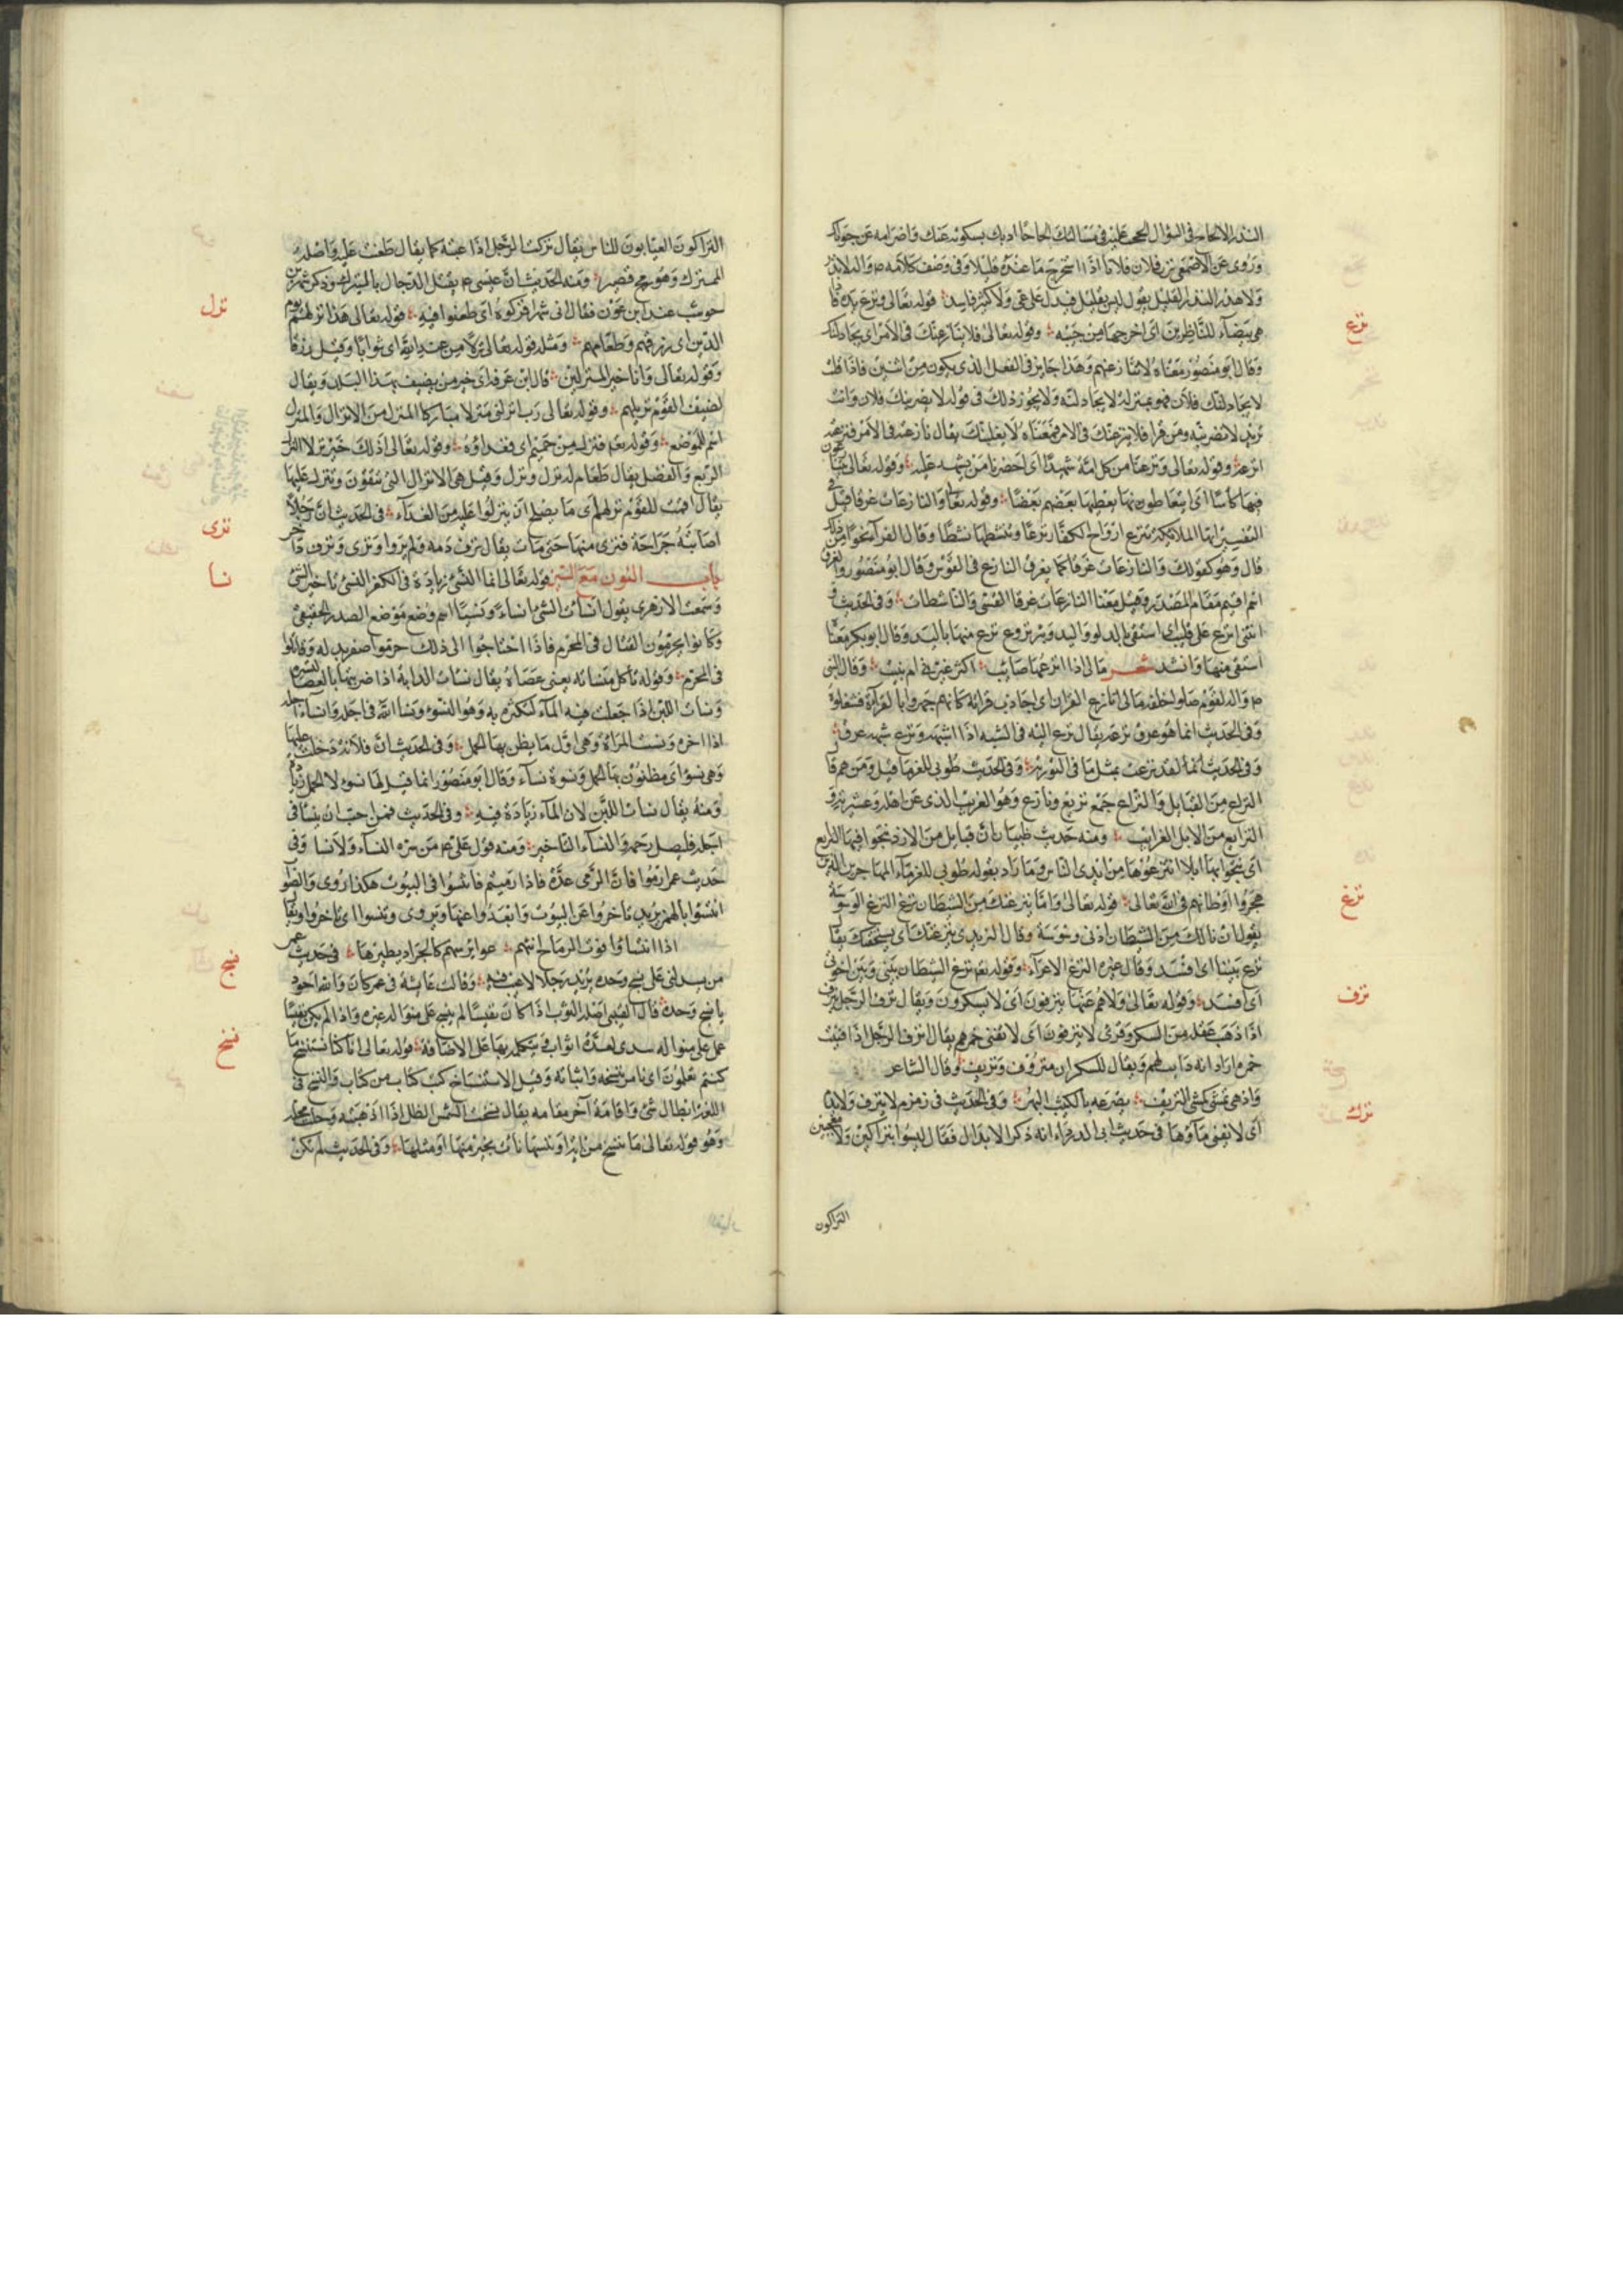 النزر الالحاح في السؤال الححت عليه في مسالتك الحاحا ادبك بسكوته عنك واضرابه عن جوابك
وروى عن الاصمعي نزر فلان فلانا اذا استخرج ما عنده قليلا وفي وصف كلامه لا نزر
ولا هذر النزر القليل يقول ليس بقليل فيدل على عي ولا كثير فاسد قوله تعالى ونزع يده فاذا
نزع
هي بيضاء للناظرين اى اخرجها من جيبه وقوله تعالى فلا ينازعنك في الامر اى يجادلنك
وقال ابو منصور معناه لا تنازعنهم وهذا جايز في الفعل الذي يكون من اثنين فاذا قلت
لا يجادلنك فلان فهو بمنزلة لا يجادلنه ولا يجوز ذلك في قوله لا يضربنك فلان وانت
تريد لا تضربنه ومن قرا فلا ينزعنك في الامر فمعناه لا يغلبنك يقال نازعنى في الامر فنزعته
انزعه وقوله تعالى ونزعنا من كل امة شهيدا اى احضرنا من يشهد عليه وقوله تعالى يتنازعون
فيها كاسا اى يتعاطون بها يعطيها بعضهم بعضا وقوله تعالى والنازعات غرقا قيل في
التفسير انها الملائكة تنزع ارواح الكفار نزعا وتنشطها نشطا وقال الفراء نحوا من ذلك
قال وهو كقولك والنازعات غرقا كما يغرق النازع في القوس وقال ابو منصور والغرق
اسم اقيم مقام المصدر وقيل معنا النازعات غرقا القسي والناشطات وفي الحديث
انزع على قليب اى استقى بالدلو واليد وبئر نزوع تنزع منها باليد وقال ابو بكر معناه
استقى منها وانشد شعر مالى اذا انزعها صايت اكبر غيرني ام بيت وقال النبي
لقوم صلوا خلفه مالى انازع القران اى اجاذب قرائه كانهم جهروا بالقراءة فشغلوه
وفي الحديث انما هو عرق نزعه يقال نزع اليه في الشبه اذا اشبهه ونزع شبهه عرق
وفي الحديث لقد نزعت بمثل ما في التوريه وفي الحديث طوبى للغربا قيل ومن هم قال
النزاع من القبايل والنزاع جمع نزيع ونازع وهو الغريب الذي عن اهله وعشيرته و
النزايع من الابل الغرايب ومنه حديث ظبيان ان قبايل من الازد نتجوا فيها النزايع
اى نتجوا بها ابلا انتزعوها من ايدى الناس وما اراد بقوله طوبى للغرباء المهاجرين الذين
نزغ
هجروا اوطانهم في الله تعالى قوله تعالى واما ينزغنك من الشيطان نزغ النزغ الوسوسة
يقول ان نالك من الشيطان ادنى وسوسة وقال اليزيدي ينزغنك اى يستخفنك يقال
نزغ بيننا اى افسد وقال غيره النزغ الاغراء وقوله نزغ الشيطان بينى وبين اخوتى
نزف
اى افسد وقوله تعالى ولا هم عنها ينزفون اى لا يسكرون ويقال نزف الرجل
اذا ذهب عقله من السكر وقرى لا ينزفون اى لا تفنى خمرهم يقال انزف الرجل اذا فنيت
خمره اراد انه دايب لهم ويقال للسكران منزوف ونزيف وقال الشاعر
واذ هي تمشي كمشي النزيف يصرعه بالكثيب البهر وفي الحديث في زمزم لا تنزف ولا تذم
نزك
اى لا يفنى ماؤها في حديث ابى الدرداء انه ذكر الابدال فقال ليسوا بنزاكين ولا معجبين
النزاكون
النزاكون العيابون للناس يقال نزكت الرجل اذا عبته كما يقال طعنت عليه واصله
النيزك وهو رمح قصير ومنه الحديث ان عيسى يقتل الدجال بالنيزك وذكر شهر بن
نزل
حوشب عند ابن عون فقال ان شهرا نزكوه اى طعنوا فيه قوله تعالى هذا نزلهم يوم
الدين اى رزقهم وطعامهم ومثله قوله تعالى نزلا من عند الله اى ثوابا وقيل رزقا
وقوله تعالى وانا خير المنزلين قال ابن عرفة اى خير من يضيف بهذا البلد ويقال
لضيف القوم نزيلهم وقوله تعالى رب انزلنى منزلا مباركا المنزل من الانزال والمنزل
اسم للموضع وقوله فنزل من حميم اى فغداؤه وقوله تعالى اذلك خير نزلا النزل
الريع والفضل يقال طعام له نزل ونزل وقيل هي الانزال التى يتقون وينزل عليها
يقال اقمت للقوم نزلهم اى ما يصلح ان ينزلوا عليه من الغداء في الحديث ان رجلا
نزى
اصابته جراحة فنزى منها حتى مات يقال نزف دمه ونزى
نسا
باب النون مع السين قوله تعالى انما النسئ زيادة في الكفر النسئ تاخير الشئ
وسمعت الازهرى يقول انسات الشئ انساء ونسيئا اسم وضع موضع المصدر الحقيقى
وكانوا يحرمون القتال في المحرم فاذا احتاجوا الى ذلك حرموا صفر بدله وقاتلوا
في المحرم وقوله تاكل منساته يعنى عصاه يقال نسات الدابة اذا ضربتها بالعصا
ونسات اللبن اذا جعلت فيه الماء لتكثره به وهو النسؤ ونسا الله في اجله وانسا اجله
اذا اخره ونسئت المراة وهي اول ما يظن بها الحمل وفي الحديث ان فلانة دخلت عليها
وهي نسؤ اى مظنون بها الحمل ونسوة نساء وقال ابو منصور انما قيل لها نسؤ لان الحمل زيادة
ومنه يقال نسات اللبن لان الماء زيادة فيه وفي الحديث فمن احب ان ينسا في
اجله فليصل رحمه والنساء التاخير ومنه قول على من سره النساء ولا نسا وفي
حديث عمر ارموا فان الرمى عدة فاذا رميتم فانتسوا في البيوت هكذا روى والصواب
انتسؤا بالهمز يريد تاخروا عن البيوت وابعدوا عنها ويروى وبنسوا اى تاخروا ويقال
اذا انتساوا فوت الرماح اتتهم عواير سهم كالجراد يطيرها في حديث عمر
نسج
من يدلنى على نسيج وحده يريد رجلا لا عيب فيه وقالت عايشة في عمر كان والله احوذيا
نسيج وحده قال القتيبى اصله الثوب اذا كان نفيسا لم ينسج على منواله غيره واذا لم يكن نفيسا
نسخ
عمل على منواله سدى لعدة اثواب على الاضافة قوله تعالى انا كنا نستنسخ ما
كنتم تعملون اى نامر بنسخه واثباته وقيل الاستنساخ كتب كتاب من كتاب والنسخ في
اللغة ابطال شئ واقامة آخر مقامه يقال نسخت الشمس الظل اذا اذهبته وحلت محله
وهو قوله تعالى ما ننسخ من اية او ننسها نات بخير منها او مثلها وفي الحديث لم تكن